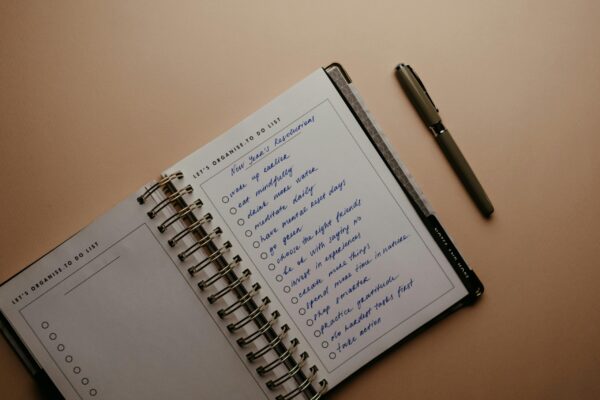 LET'S ORGANISE-TO DO LIST
LET'S ORGANISE-TO DO LIST
New Year's Resolutions
wake up earlier
eat mindfully
drink more water
meditate daily
have mental reset days
go green
choose the right friends
be ok with saying no
invest in experiences
create more things
spend more time in nature
shop smarter
practice gratitude
do hardest tasks first
take action